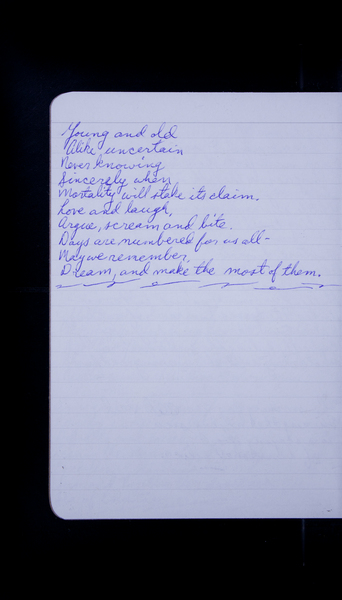 Young and old
Alike, uncertain
Never knowing
Sincerely when,
Mortality will stake its claim.
Love and laugh,
Argue, scream and bite.
Days are numbered for us all-
May we remember,
Dream, and make the most of them.